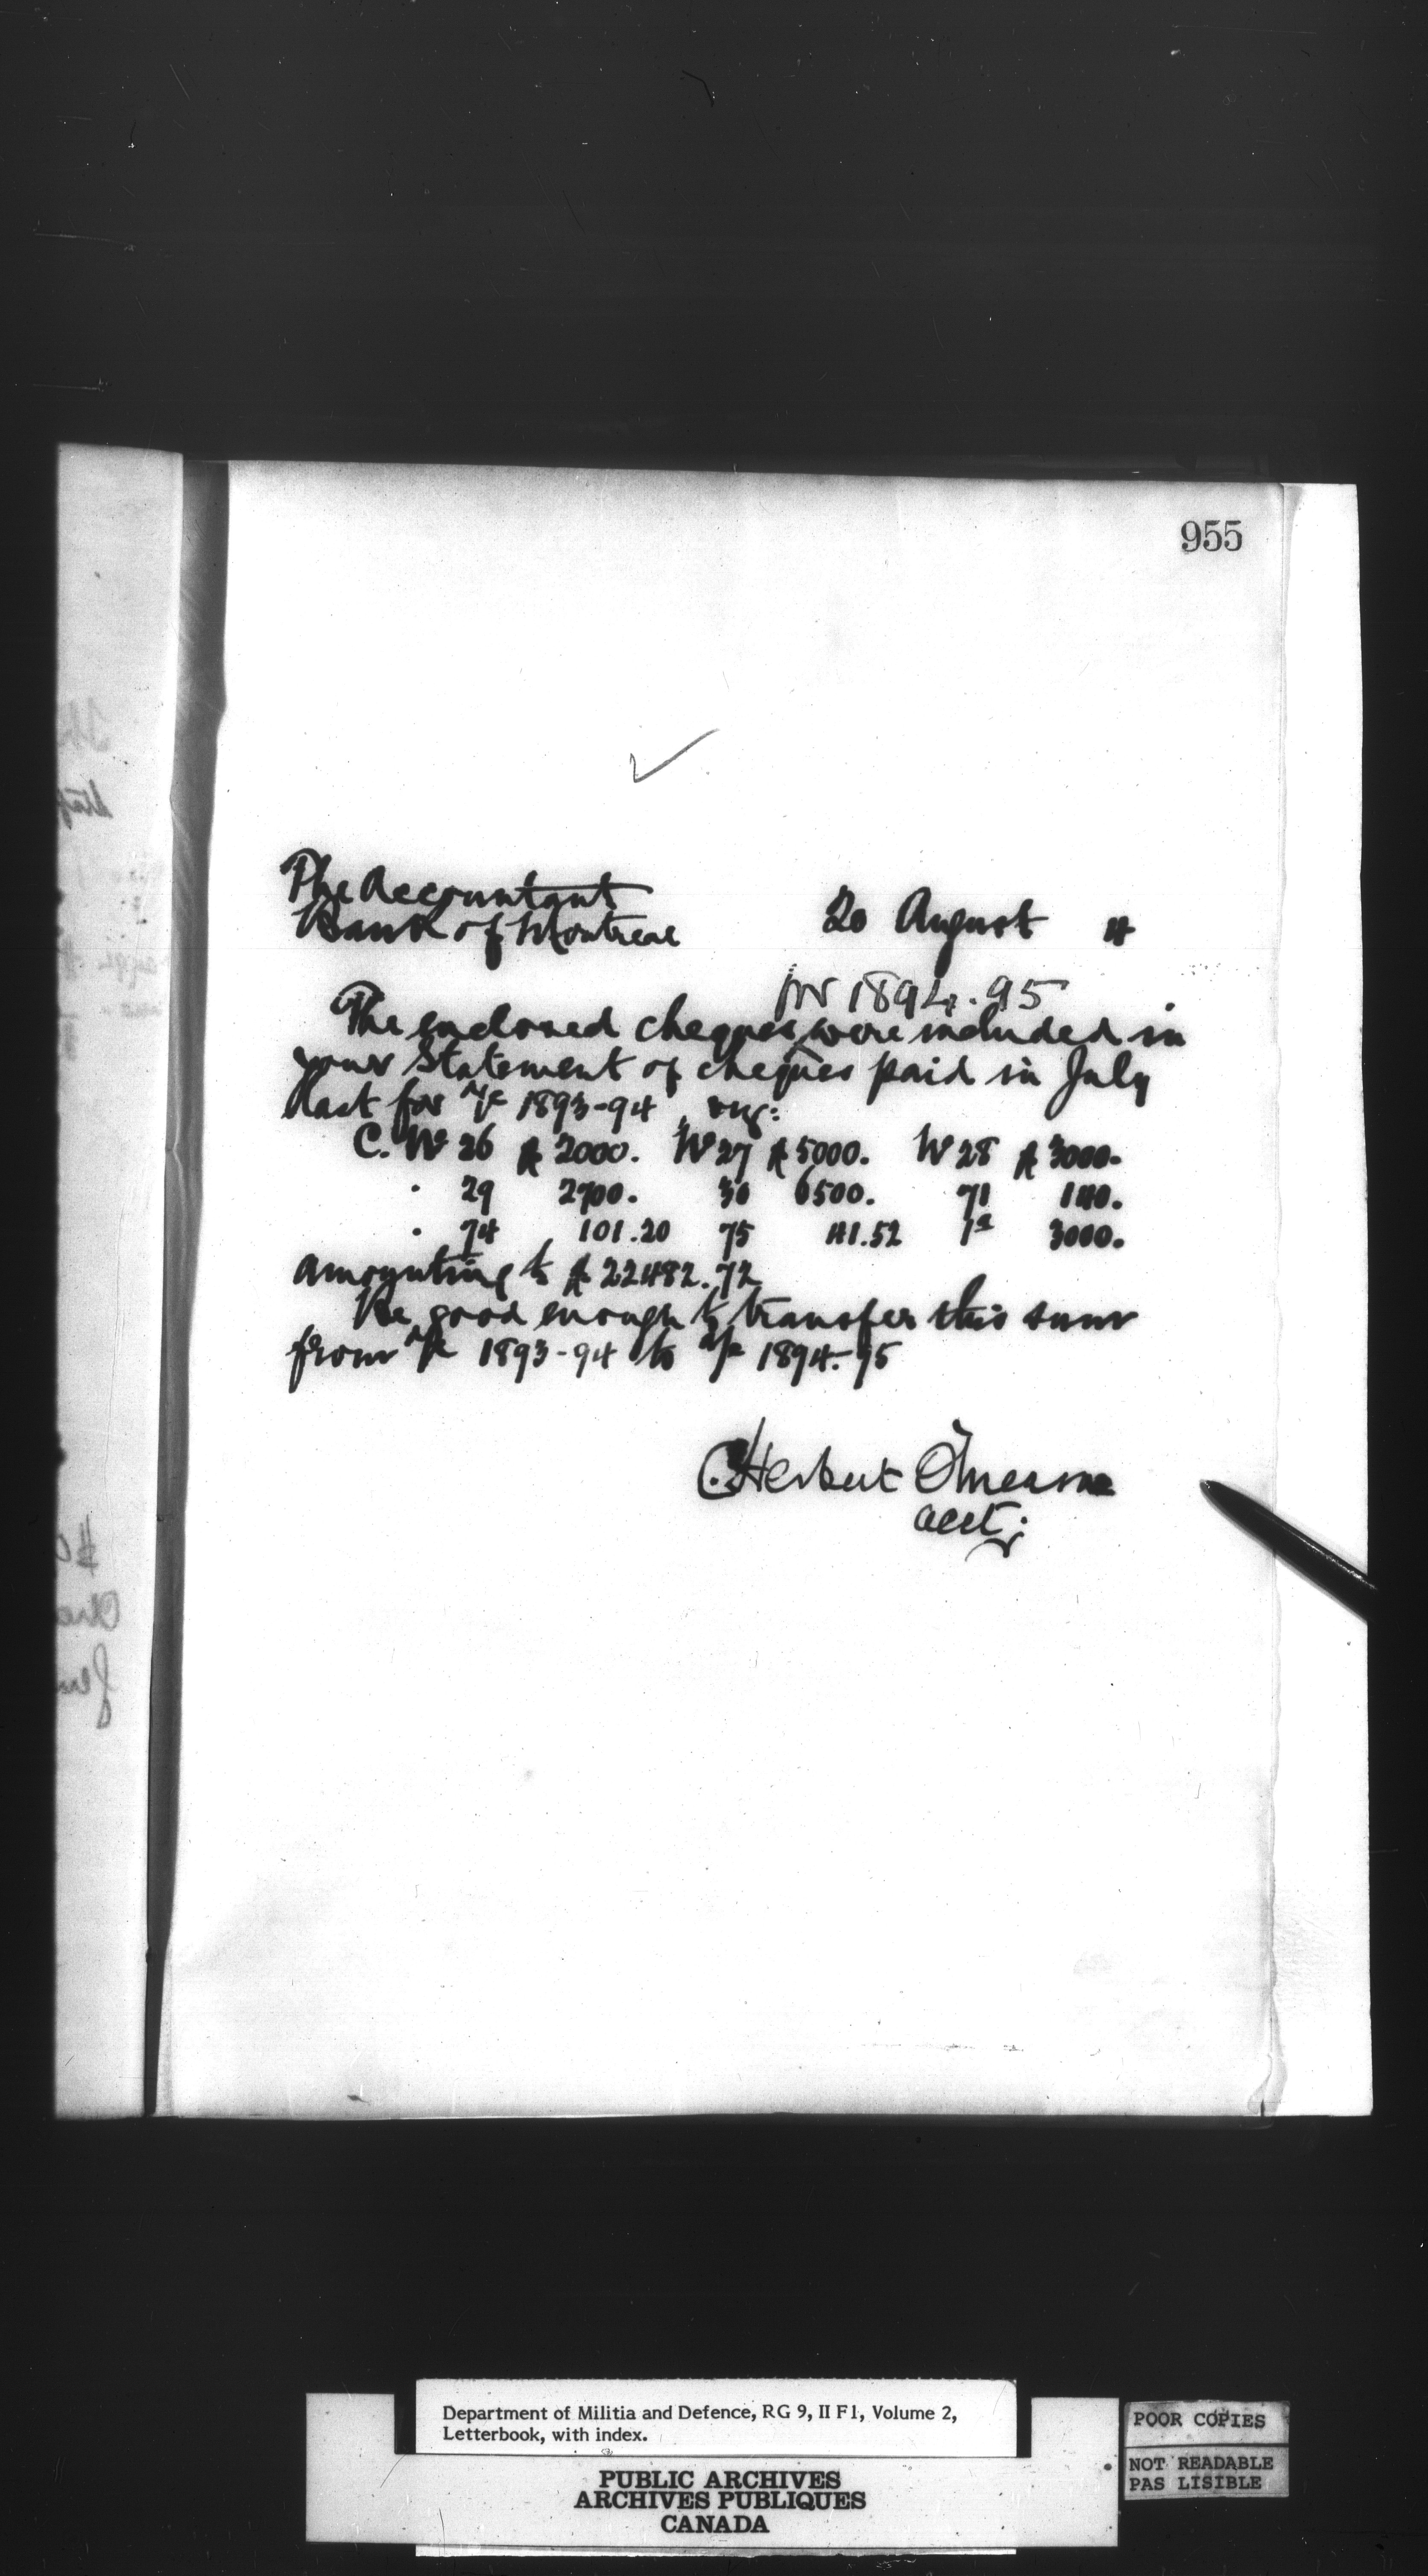 955
The Accountant
Bank of Montreal 20 August 4
for 1894.95
The enclosed cheques were included in
your Statement of cheques paid in July
last for a/c 1893-94, viz:
C. W 26 $ 2000. W 27 $ 5000. W 28 $ 3000.
" 29 2700. 30 6500. 71 140.
" 74 101.20 75 41.52 1a 3000.
amounting to $ 22482.72
Be good enough to transfer this sum
from a/c 1893-94 to a/c 1894-95
C. Herbert O'Meara
acct;
Department of Militia and Defence, RG 9, II F1, Volume 2,
Letterbook, with index.
PUBLIC ARCHIVES
ARCHIVES PUBLIQUES
CANADA
POOR COPIES
NOT READABLE
PAS LISIBLE